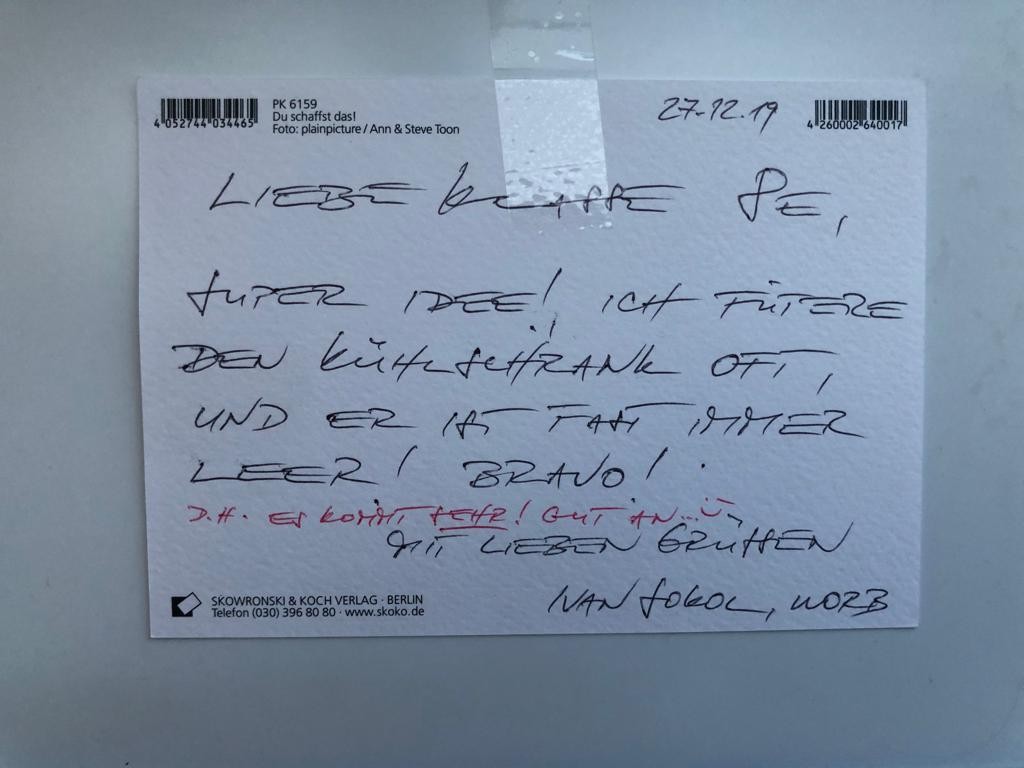 PK 6159
Du schaffst das!
Foto: plainpicture / Ann & Steve Toon
4 032744 034465
27.12.19
4 260002 640017
LIEBE KLASSE 8E,
SUPER IDEE! ICH FÜTERE
DEN KÜHLSCHRANK OFT,
UND ER IST FAST IMMER
LEER! BRAVO!
D.H. ES KOMMT SEHR! GUT AN...
MIT LIEBEN GRÜSSEN
IVAN SOKOL, WORB
SKOWRONSKI & KOCH VERLAG · BERLIN
Telefon (030) 396 80 80 · www.skoko.de